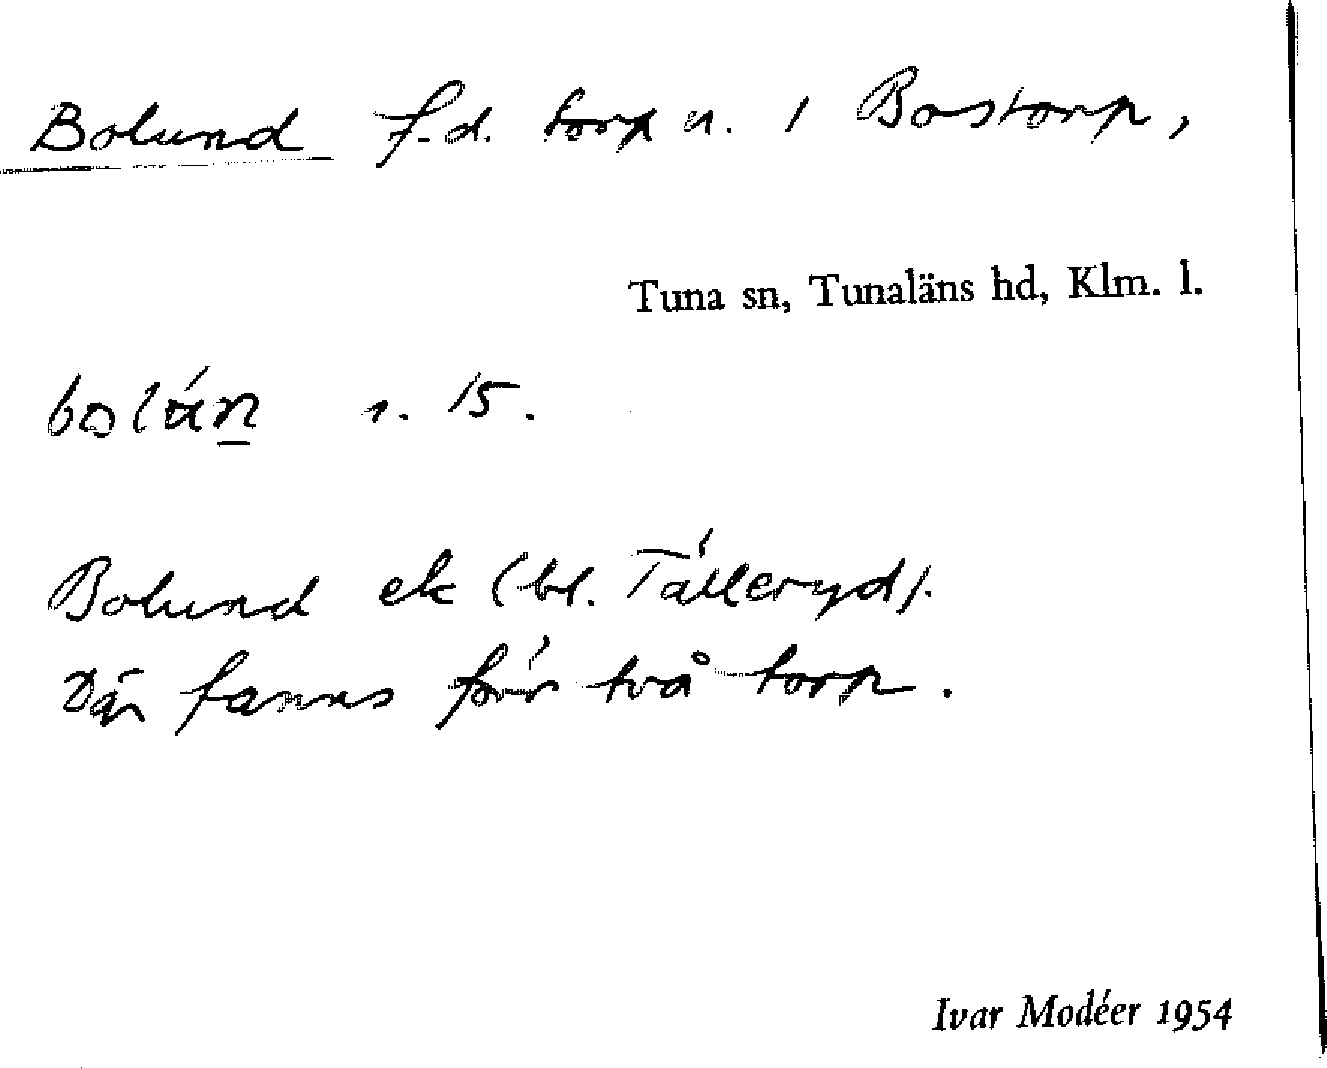 Bolund f.d. torp u. 1 Bostorp,
Tuna sn, Tunaläns hd, Klm. l.
bolán s. 15.
Bolund ek (bl. Tälleryd).
Där fanns förr två torp.
Ivar Modéer 1954